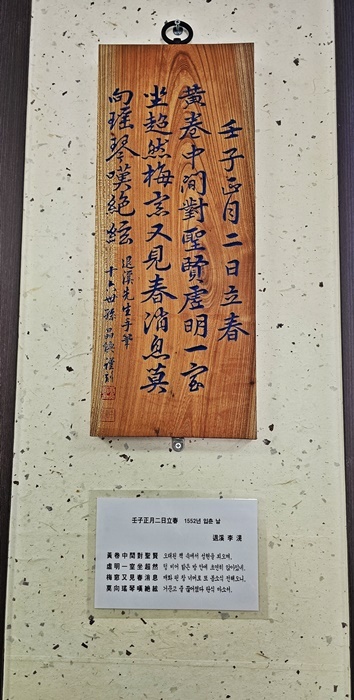 壬子正月二日立春
黃卷中間對聖賢虛明一室
坐超然梅窓又見春消息莫
向瑤琴嘆絶絃
退溪先生手筆
壬子正月二日立春 1552년 입춘 날
退溪 李滉
黃卷中間對聖賢 오래된 책 속에서 성현을 뵈오며,
虛明一室坐超然 텅 비어 밝은 방 안에 초연히 앉아있네.
梅窓又見春消息 매화 핀 창 너머로 또 봄소식 전해오니,
莫向瑤琴嘆絶絃 거문고 줄 끊어졌다 탄식 마소서.